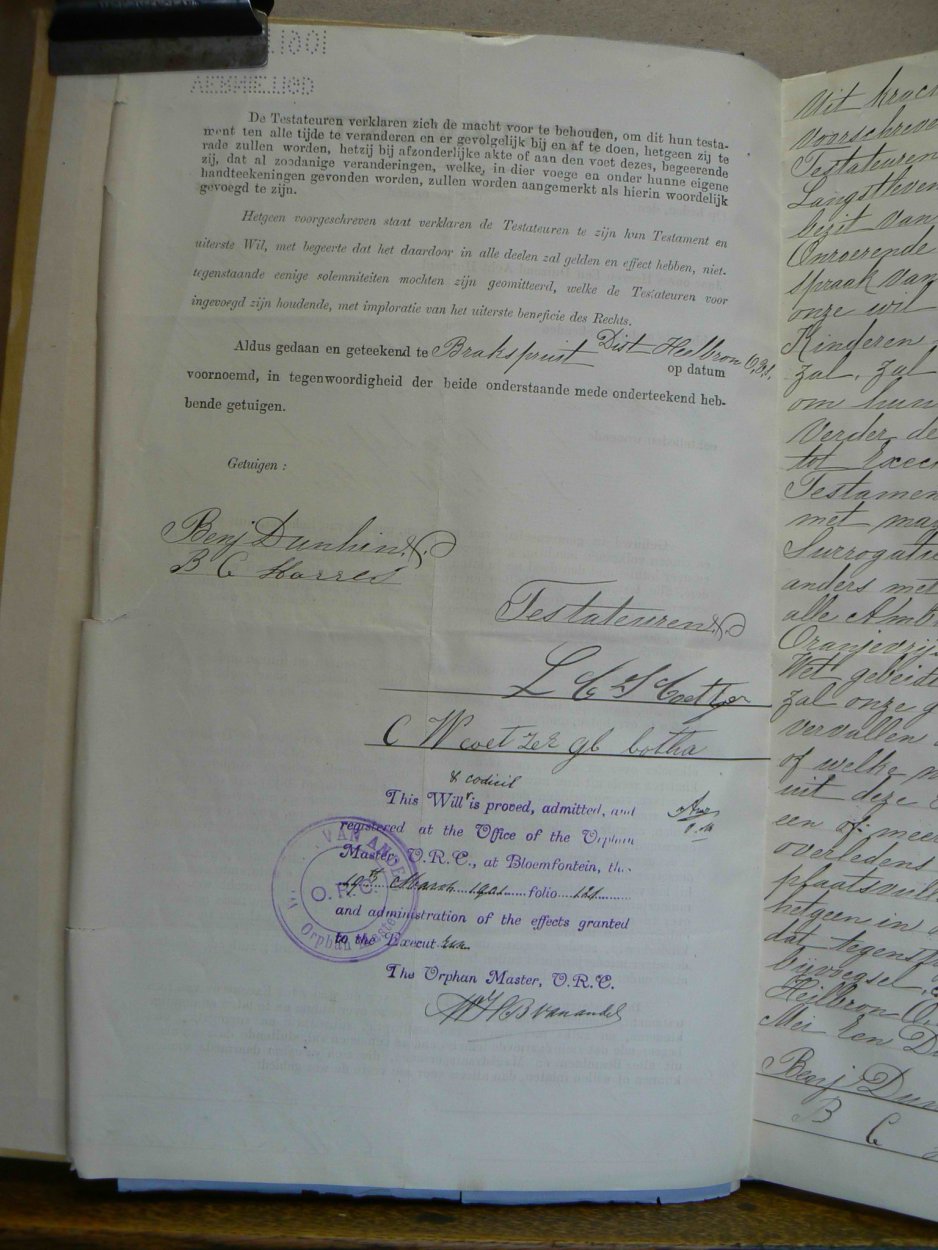 De Testateuren verklaren zich de macht voor te behouden, om dit hun testa-
ment ten alle tijde te veranderen en er gevolgelijk bij en af te doen, hetgeen zij te
rade zullen worden, hetzij bij afzonderlijke akte of aan den voet dezes, begeerende
zij, dat al zoodanige veranderingen, welke, in dier voege en onder hunne eigene
handteekeningen gevonden worden, zullen worden aangemerkt als hierin woordelijk
gevoegd te zijn.
Hetgeen voorgeschreven staat verklaren de Testateuren te zijn hun Testament en
uiterste Wil, met begeerte dat het daardoor in alle deelen zal gelden en effect hebben, niet-
tegenstaande eenige solemniteiten mochten zijn geomitteerd, welke de Testateuren voor
ingevoegd zijn houdende, met imploratie van het uiterste beneficie des Rechts.
Aldus gedaan en geteekend te Brakspruit Dist Heilbron
op datum
voornoemd, in tegenwoordigheid der beide onderstaande mede onderteekend heb-
bende getuigen.
Getuigen :
Benj
B C
Testateuren
L C S Coetzer
C W coetzer gb botha
& codicil
This Will is proved, admitted, and
registered at the Office of the Orphan
Master, O.R.C., at Bloemfontein, the
March 1901 folio
and administration of the effects granted
to the Execut
The Orphan Master, O.R.C.
O.R.C.
Orphan Master
Uit
voorschreven
Testateuren
bezit van
Onroerende
spraak van
onze wil
Kinderen
zal, zal
om hun
Verder de
tot
Testamen
met
Surrogatie
anders met
alle
Oranjevrij
Wet
zal onze
vervallen
of welke
uit deze
een of meer
overledens
hetgeen in
dat
bijvoegsel
Heilbron
Mei Een
Benj
B C